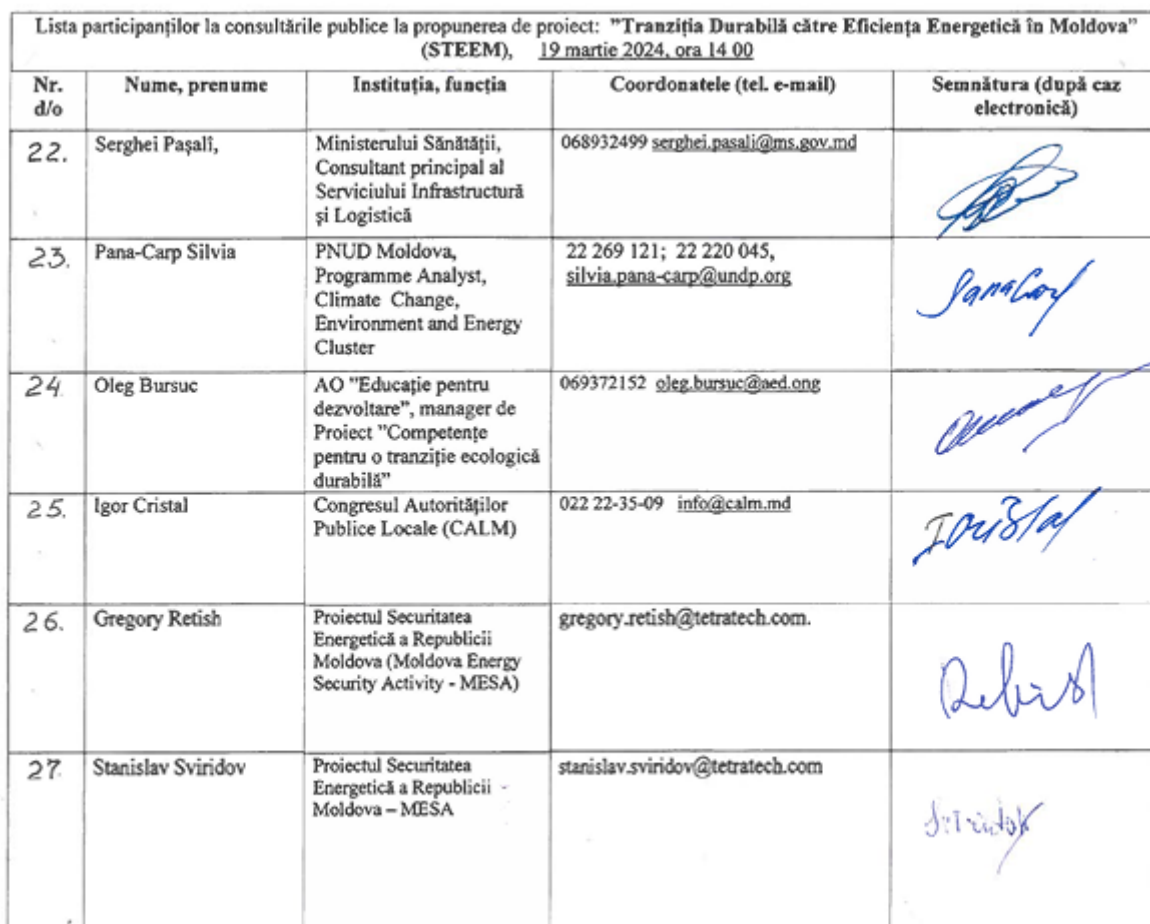 Lista participanților la consultările publice la propunerea de proiect: "Tranziția Durabilă către Eficiența Energetică în Moldova"
(STEEM), 19 martie 2024, ora 14 00
Nr. d/o
Nume, prenume
Instituția, funcția
Coordonatele (tel. e-mail)
Semnătura (după caz
electronică)
22.
Serghei Pașalî,
Ministerului Sănătății,
Consultant principal al
Serviciului Infrastructură
și Logistică
068932499 serghei.pasali@ms.gov.md
23.
Pana-Carp Silvia
PNUD Moldova,
Programme Analyst,
Climate Change,
Environment and Energy
Cluster
22 269 121; 22 220 045,
silvia.pana-carp@undp.org
24.
Oleg Bursuc
AO "Educație pentru
dezvoltare", manager de
Proiect "Competențe
pentru o tranziție ecologică
durabilă"
069372152 oleg.bursuc@aed.ong
25.
Igor Cristal
Congresul Autorităților
Publice Locale (CALM)
022 22-35-09 info@calm.md
26.
Gregory Retish
Proiectul Securitatea
Energetică a Republicii
Moldova (Moldova Energy
Security Activity - MESA)
gregory.retish@tetratech.com.
27.
Stanislav Sviridov
Proiectul Securitatea
Energetică a Republicii
Moldova – MESA
stanislav.sviridov@tetratech.com